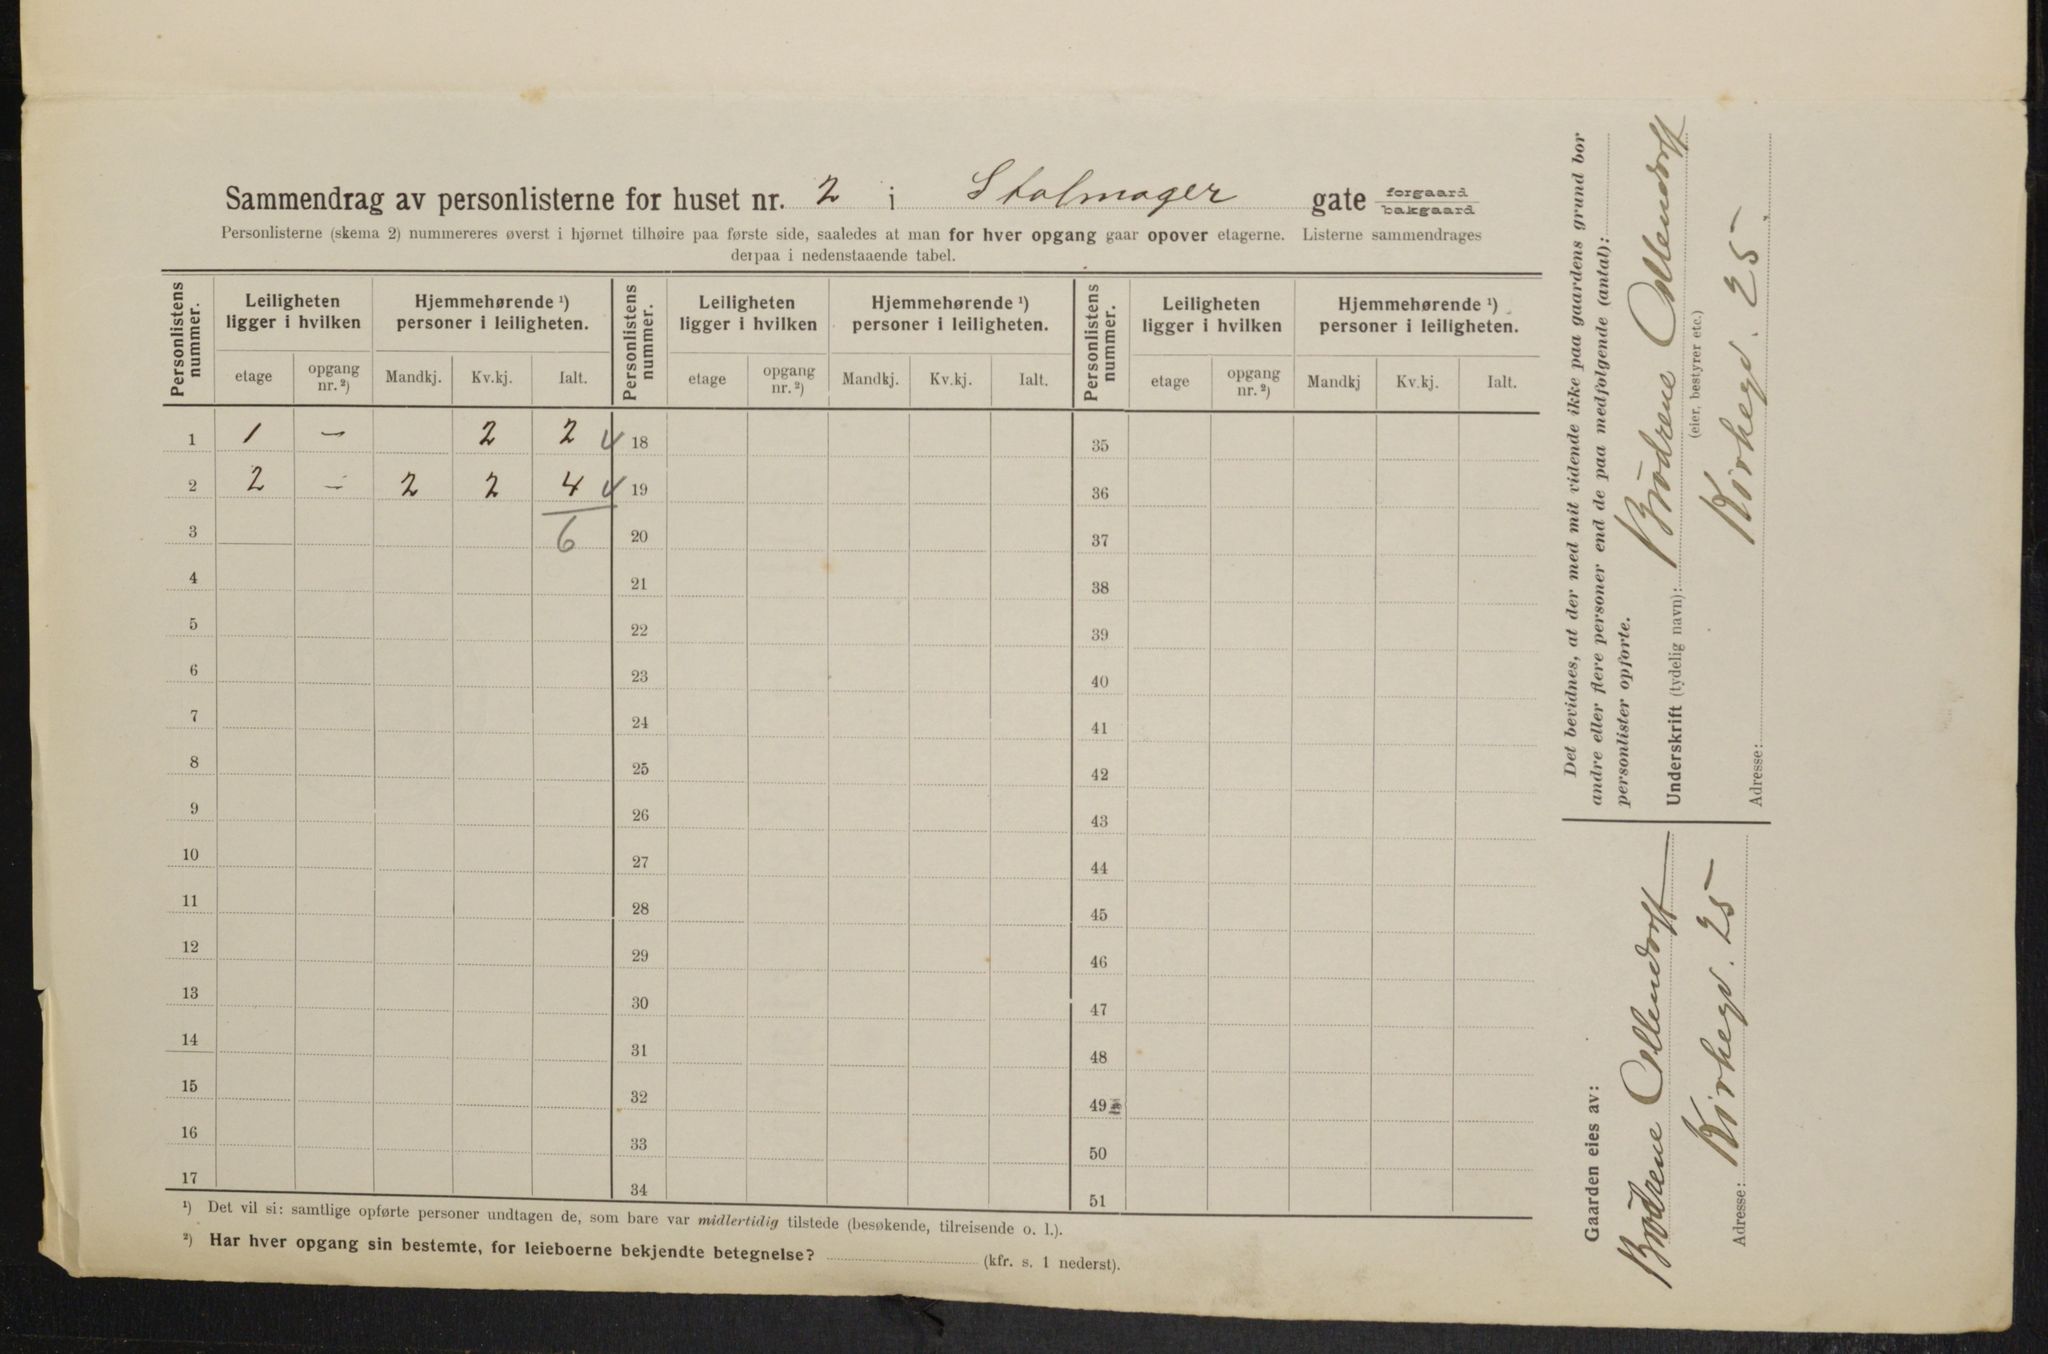 Sammendrag av personlisterne for huset nr. 2 i Stolmager gate forgaard bakgaard
Personlisterne (skema 2) nummereres øverst i hjørnet tilhøire paa første side, saaledes at man for hver opgang gaar opover etagerne. Listerne sammendrages
derpaa i nedenstaaende tabel.
Personlistens nummer. Leiligheten ligger i hvilken Hjemmehørende ¹) personer i leiligheten. Personlistens nummer. Leiligheten ligger i hvilken Hjemmehørende ¹) personer i leiligheten. Personlistens nummer. Leiligheten ligger i hvilken Hjemmehørende ¹) personer i leiligheten.
etage opgang nr. ²) Mandkj. Kv.kj. Ialt. etage opgang nr. ²) Mandkj. Kv.kj. Ialt. etage opgang nr. ²) Mandkj Kv.kj. Ialt.
1 1 – 2 2 18 35
2 2 – 2 2 4 19 36
3 6 20 37
4 21 38
5 22 39
6 23 40
7 24 41
8 25 42
9 26 43
10 27 44
11 28 45
12 29 46
13 30 47
14 31 48
15 32 49
16 33 50
17 34 51
¹) Det vil si: samtlige opførte personer undtagen de, som bare var midlertidig tilstede (besøkende, tilreisende o. l.).
²) Har hver opgang sin bestemte, for leieboerne bekjendte betegnelse? (kfr. s. 1 nederst).
Det bevidnes, at der med mit vidende ikke paa gaardens grund bor
andre eller flere personer end de paa medfølgende (antal):
personlister opførte.
Underskrift (tydelig navn): Brödrene Ollendorff
(eier, bestyrer etc.)
Adresse: Kirkegd. 25
Gaarden eies av: Brödrene Ollendorff
Adresse: Kirkegd. 25